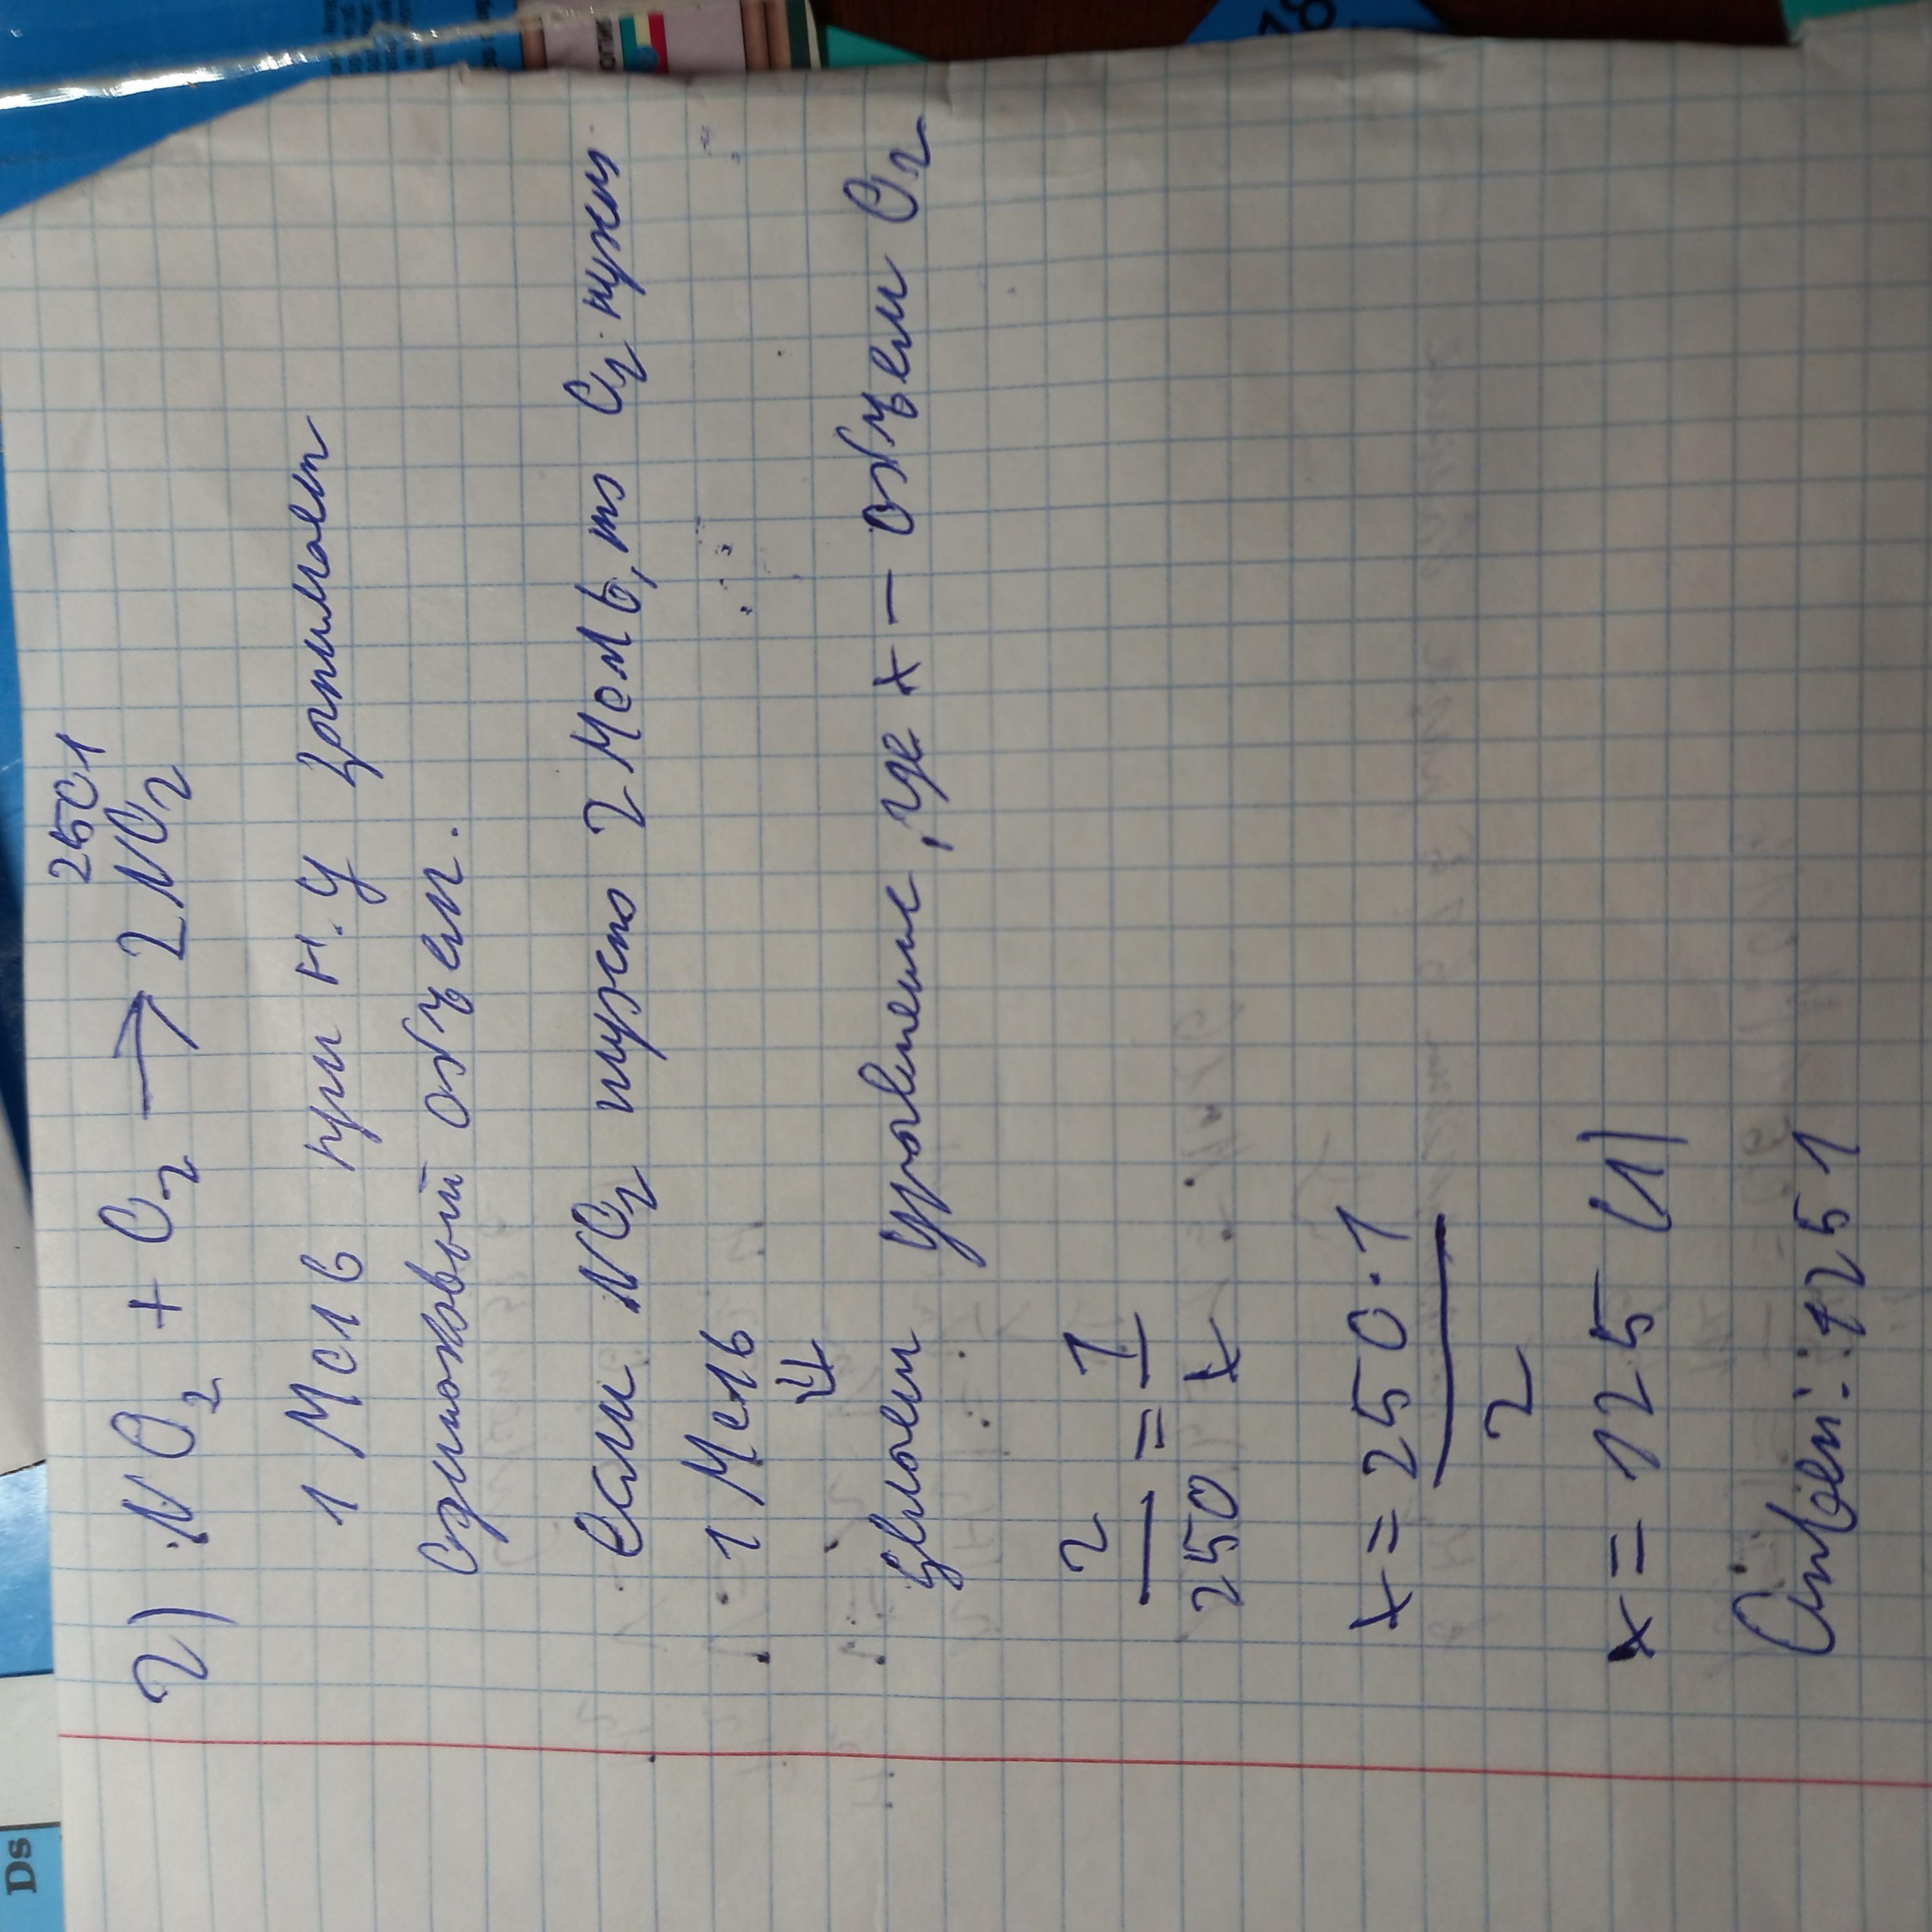 250л
2) NO2 + O2 → 2NO2
1 Моль при н.у занимает
одинаковый объем.
Если NO2 нужно 2 Моль, то O2 нужно
1 Моль
⇓
уравнение, где x – объем O2
2/250 = 1/x
x = 250·1/2
x = 125 (л)
Ответ: 125л
18
Ds